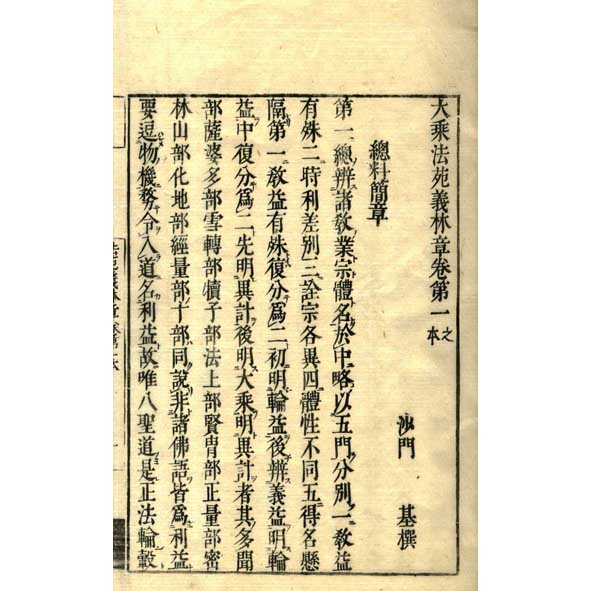 大乘法苑義林章卷第一之本
沙門　基撰
總料簡章
第一總辨諸敎業宗體名於中略以五門分別一敎益
有殊二時利差別三詮宗各異四體性不同五得名懸
隔第一敎益有殊復分爲二初明輪益後辨義益明輪
益中復分爲二先明異計後明大乘明異計者其多聞
部薩婆多部雪轉部犢子部法上部賢冑部正量部密
林山部化地部經量部十部同說非諸佛語皆爲利益
要逗物機務令入道名利益故唯八聖道是正法輪轂